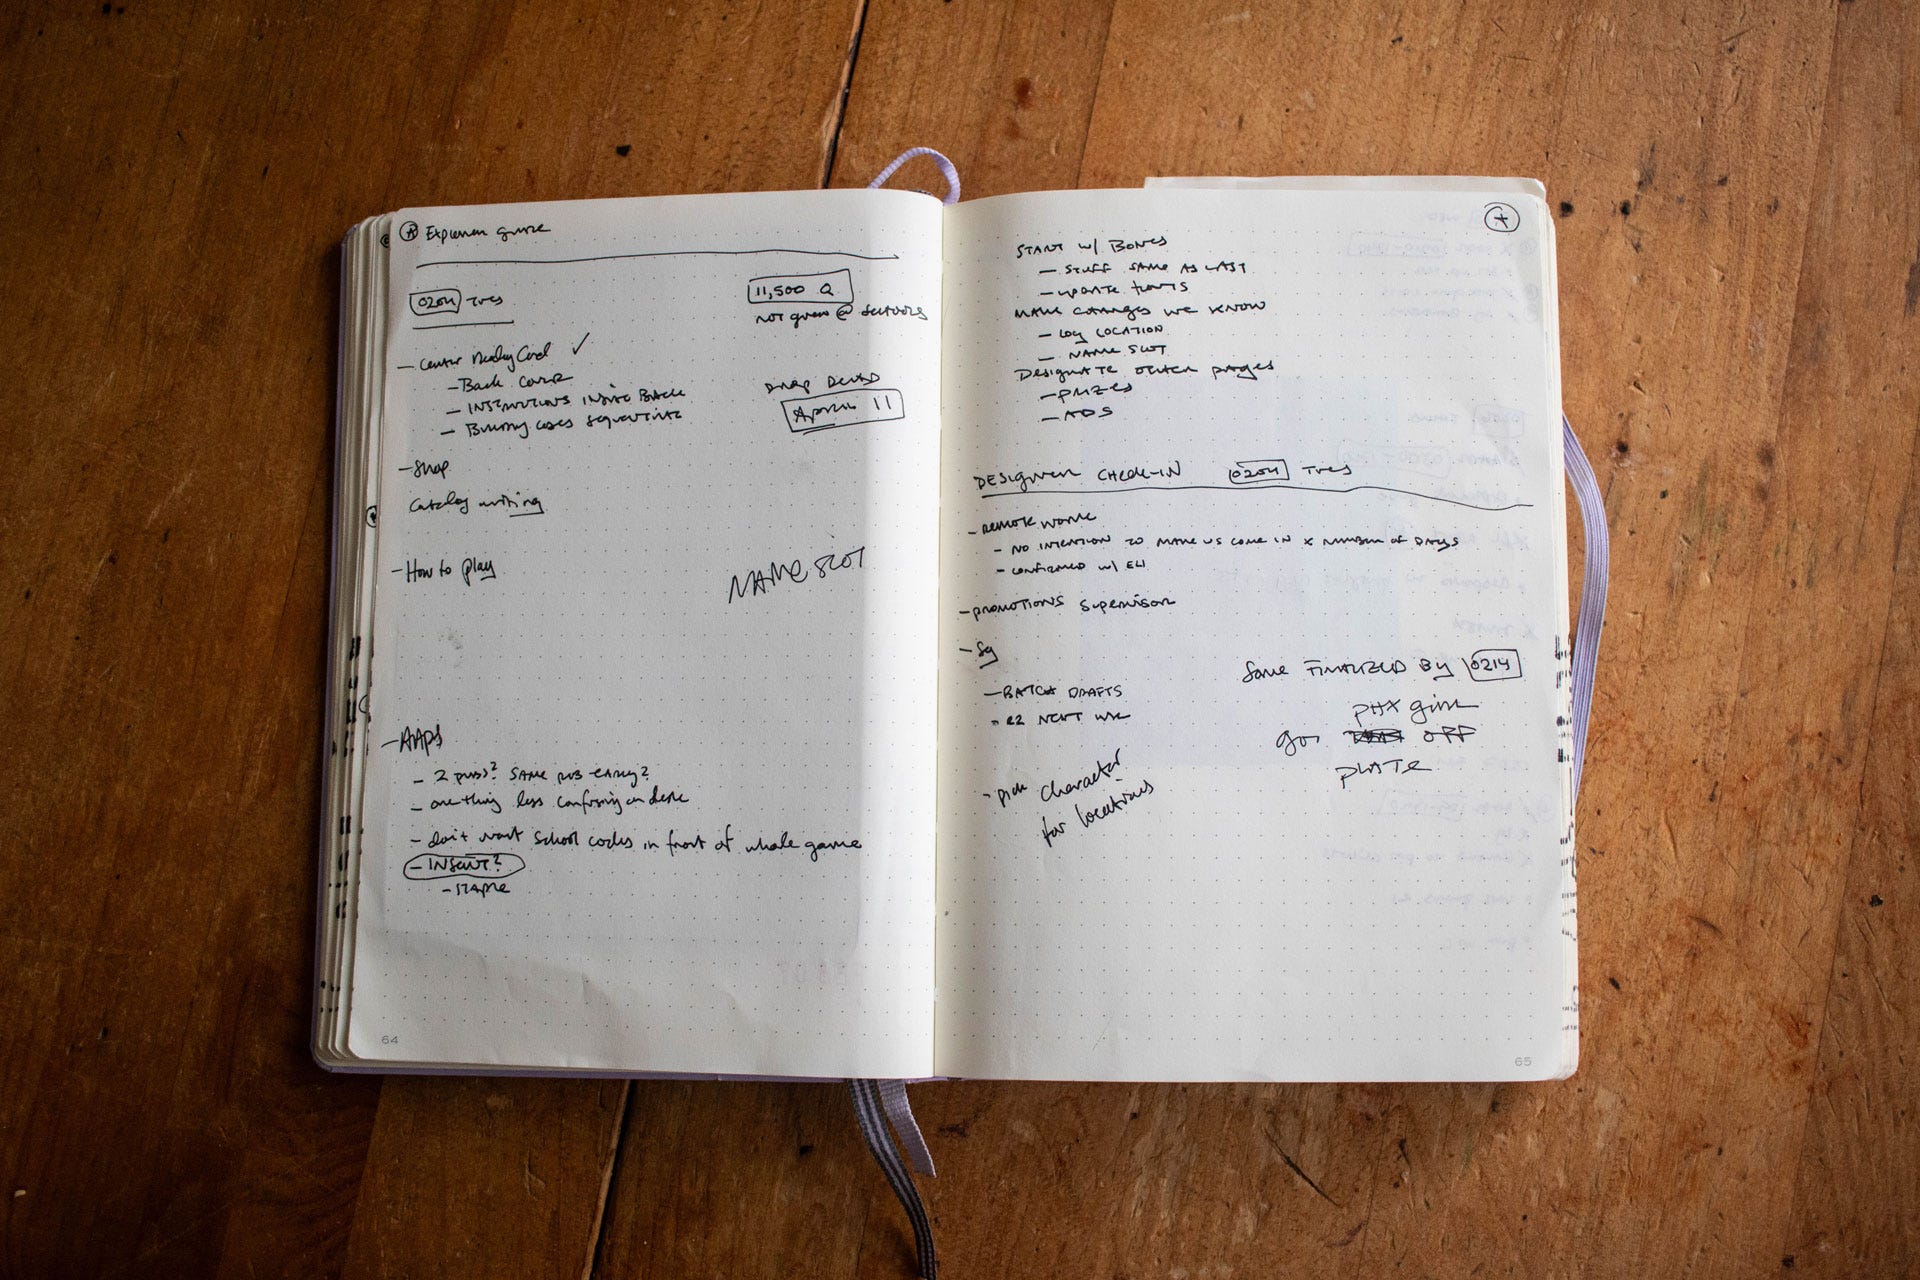 Explorer guide
0204 Tues
11,500 Q
not given @ schools
- Center Reading Card ✓
- Back cover
- INSTRUCTIONS INSIDE BACK
- Bunny codes sequential
DROP DEAD
April 11
- Shop
Catalog writing
- How to play
NAME SLOT
- AAPS
- 2 pubs? SAME pub early?
- one thing less confusing on desk
- don't want school codes in front of whole game
- INSERT?
- STAPLE
64
START w/ BONES
- STUFF SAME AS LAST
- UPDATE FONTS
MAKE CHANGES WE KNOW
- LOG LOCATION
- NAME SLOT
DESIGNATE OTHER pages
- PRIZES
- ADS
DESIGNER CHECK-IN 0204 Tues
- REMOTE WORK
- NO INTENTION TO MAKE US COME IN X NUMBER OF DAYS
- CONFIRMED w/ ELI
- PROMOTIONS SUPERVISOR
- Sg
- BATCH DRAFTS
- R2 NEXT WK
Some FINALIZED By 0214
- pick character
for locations
go OFF
PLATE
65